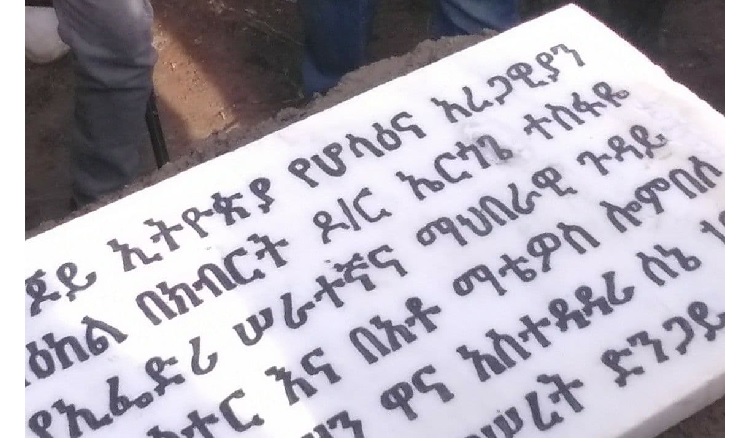 ጆይ ኢትዮጵያ የሆሳዕና አረጋዊያን
ዕከል በክብርት ዶ/ር ኤርጎጌ ተስፋዬ
የኢፌድሪ ሠራተኛና ማህበራዊ ጉዳይ
ስተር እና በአቶ ማቴዎስ ሎምበሰ
ዞን ዋና አስተዳዳሪ ሰኔ
ድንጋይ